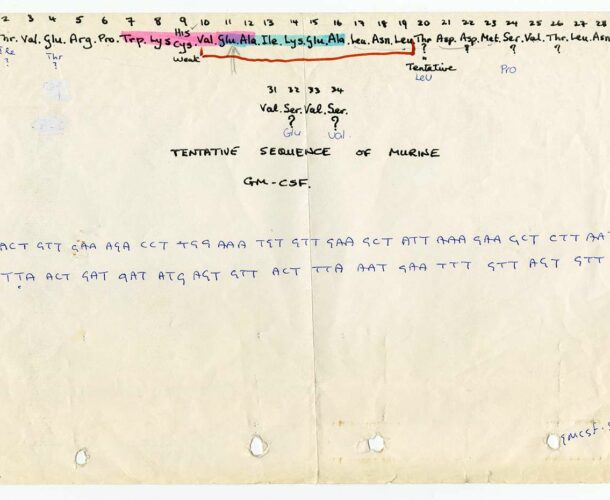 2 3 4 5 6 7 8 9 10 11 12 13 14 15 16 17 18 19 20 21 22 23 24 25 26 27 28
Thr. Val. Glu. Arg. Pro. Trp. Lys His Cys. Val. Glu. Ala. Ile. Lys. Glu. Ala. Leu. Asn. Leu Thr Asp. Asp. Met. Ser. Val. Thr. Leu. Asn
? Thr ? Weak ? ? ? ?
Tentative
Leu Pro
31 32 33 34
Val. Ser. Val. Ser.
? ?
Glu Val.
TENTATIVE SEQUENCE OF MURINE
GM-CSF.
ACT GTT GAA AGA CCT TGG AAA TGT GTT GAA GCT ATT AAA GAA GCT CTT AAT
TTA ACT GAT GAT ATG AGT GTT ACT TTA AAT GAA TTT GTT AGT GTT
gmcsf.